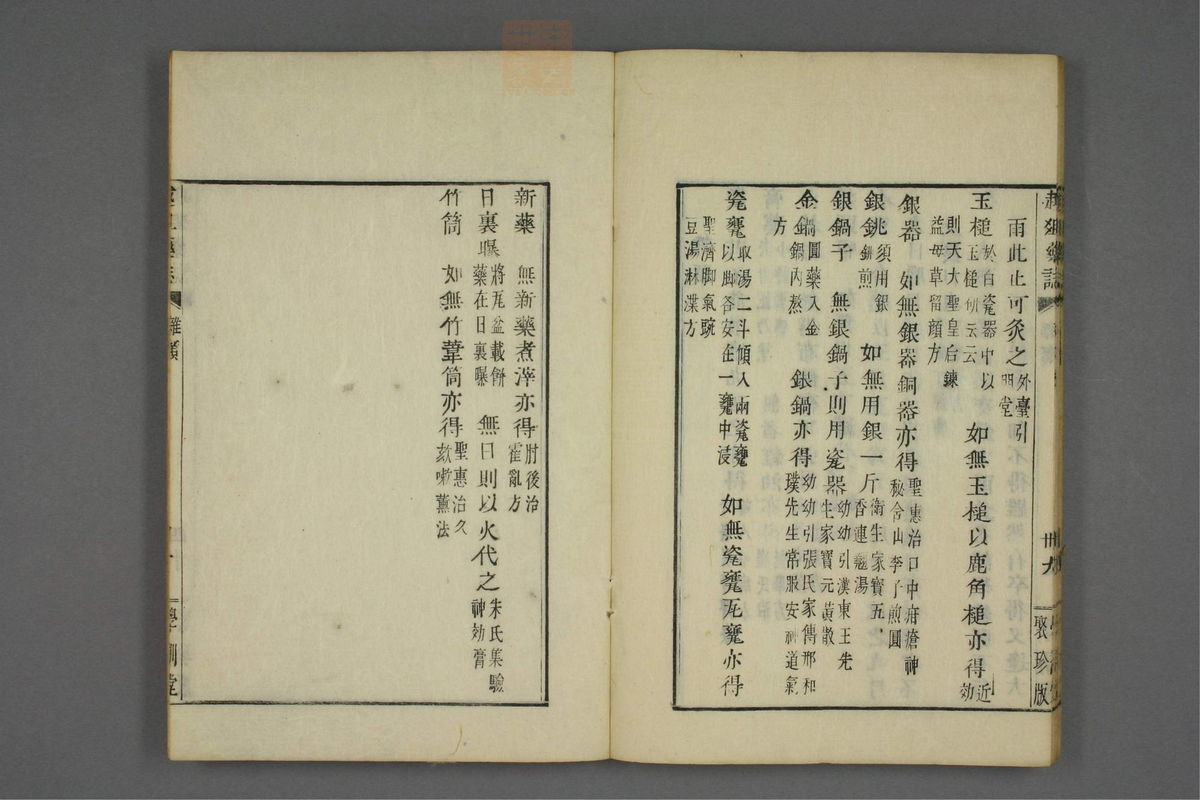 雨此止可灸之外臺引明堂
玉槌於白瓷器中以玉槌研云云如無玉槌以鹿角槌亦得近効
則天大聖皇后鍊益母草留顔方
銀器如無銀器銅器亦得聖惠治口中疳瘡神秘含山李子煎圓
銀銚須用銀銚煎如無用銀一斤衛生家寶五香連翹湯
銀鍋子無銀鍋子則用瓷器幼幼引漢東王先生家寶元黃散
金鍋圓藥入金鍋內熬銀鍋亦得幼幼引張氏家傳邢和璞先生常服安神道氣
方
瓷甕取湯二斗傾入兩瓷甕以脚各安在一甕中浸如無瓷甕瓦甕亦得
聖濟脚氣豌豆湯淋渫方
卅六
聚珍版
新藥無新藥煮滓亦得肘後治霍亂方
日裏曝將瓦盆載餅藥在日裏曝無日則以火代之朱氏集驗神効膏
竹筒如無竹葦筒亦得聖惠治久欬嗽薰法
雜類
學訓堂